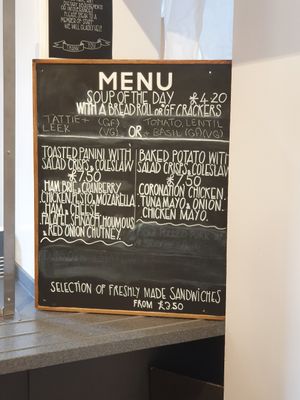 DIETARY REQUIREMENTS
OR INTOLERANCES
PLEASE SPEAK TO A
MEMBER OF STAFF
WE WILL GLADLY HELP
THANK YOU
MENU
SOUP OF THE DAY £4.20
WITH A BREAD ROLL OR GF CRACKERS
TATTIE + (GF) TOMATO, LENTIL
LEEK (VG) OR + BASIL (GF)(VG)
TOASTED PANINI WITH
SALAD CRISPS & COLESLAW
£7.50
HAM, BRIE & CRANBERRY
CHICKEN, PESTO & MOZARELLA
HAM & CHEESE
FALAFEL, SPINACH, HOUMOUS
& RED ONION CHUTNEY.
BAKED POTATO WITH
SALAD CRISPS & COLESLAW
CORONATION CHICKEN.
TUNA MAYO & ONION.
CHICKEN MAYO.
SELECTION OF FRESHLY MADE SANDWICHES
FROM £3.50